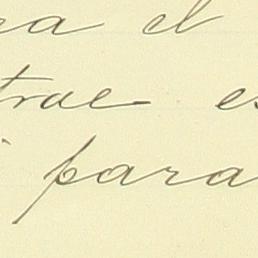 ea el
trae es
para